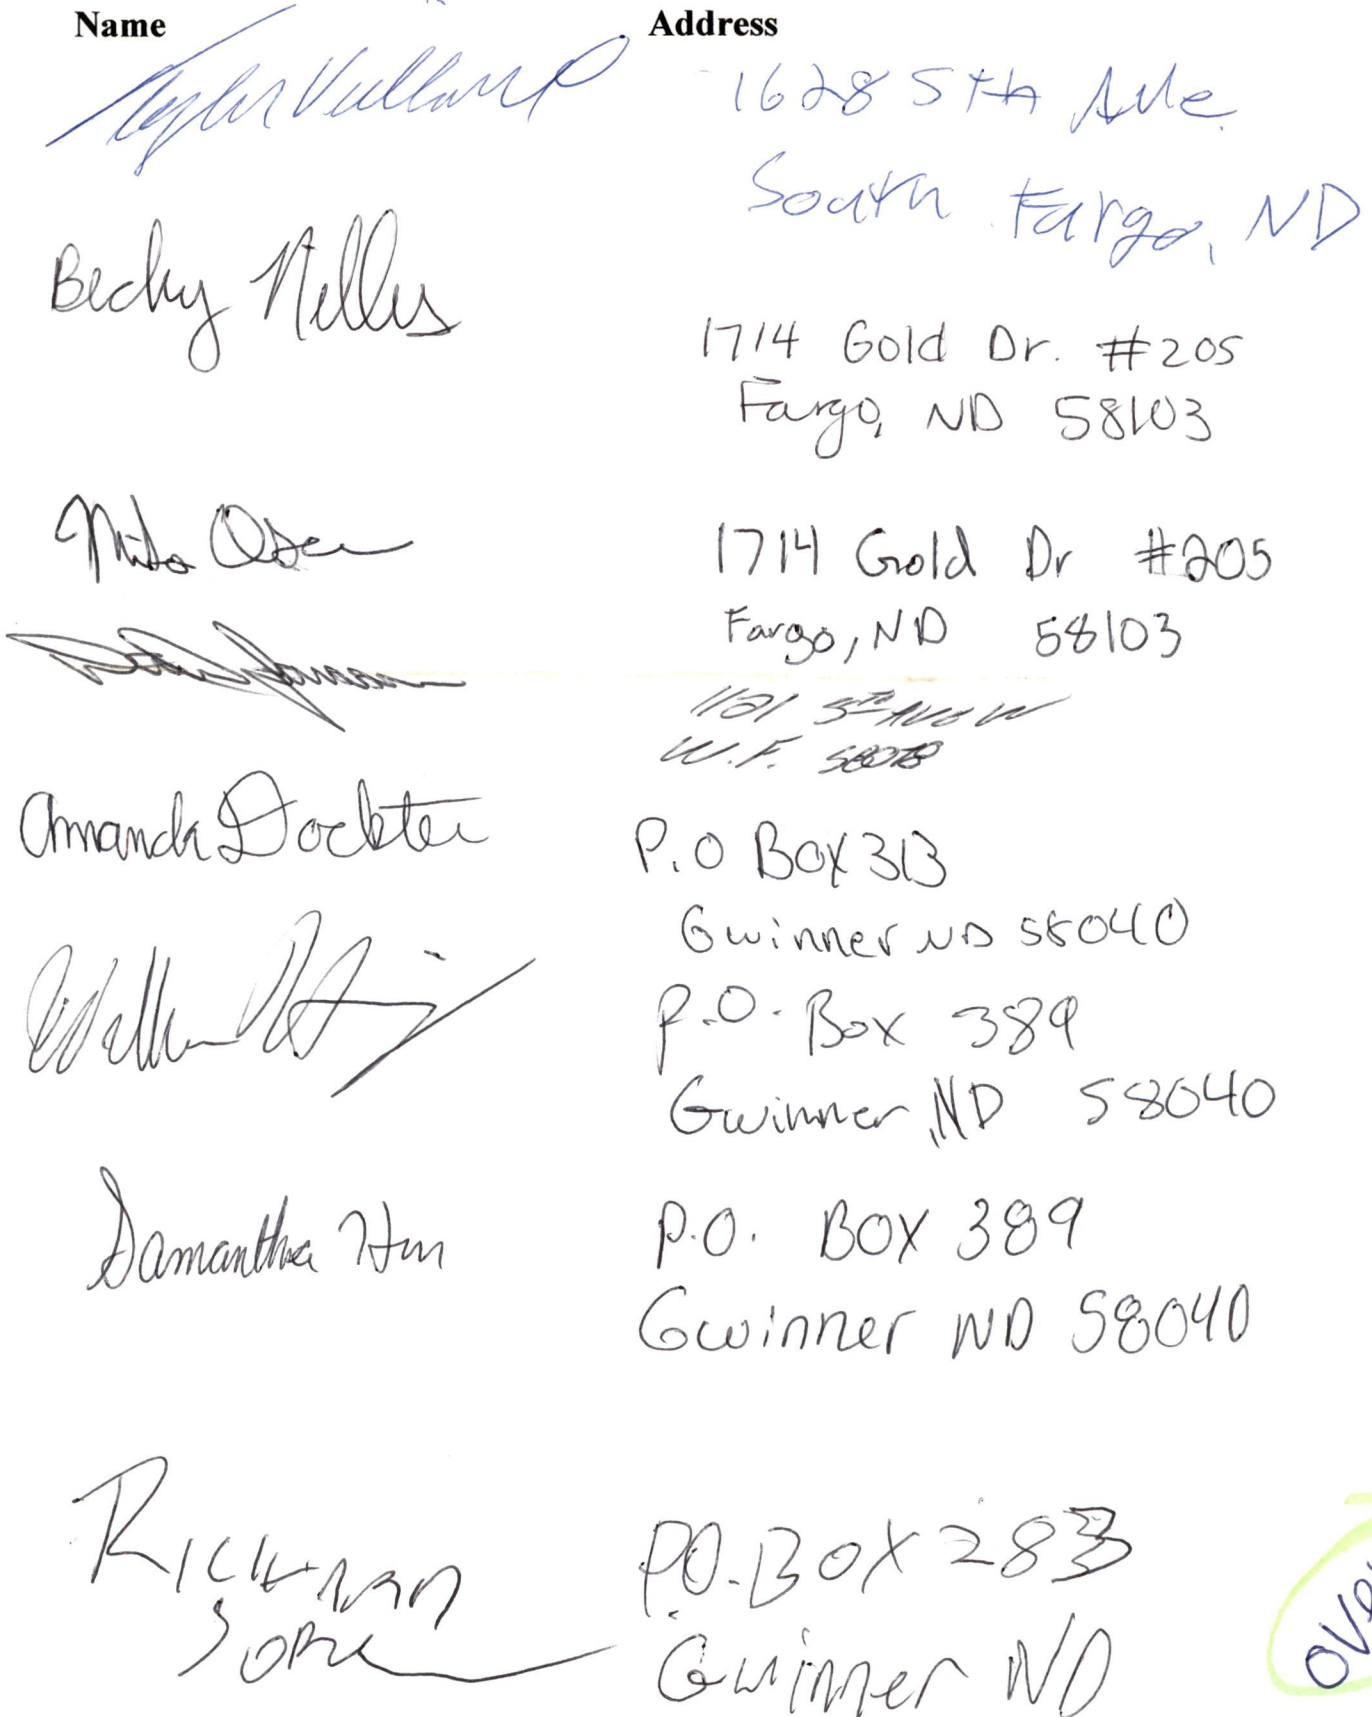 Name Address
Tyler 1628 5th Ave
South Fargo, ND
Becky Nelles
1714 Gold Dr. #205
Fargo, ND 58103
1714 Gold Dr #205
Fargo, ND 58103
1121 5th Ave W
W.F. 58078
Amanda Dockter P.O Box 313
Gwinner ND 58040
William P.O. Box 389
Gwinner, ND 58040
Samantha P.O. Box 389
Gwinner ND 58040
P.O. Box 283
Gwinner ND